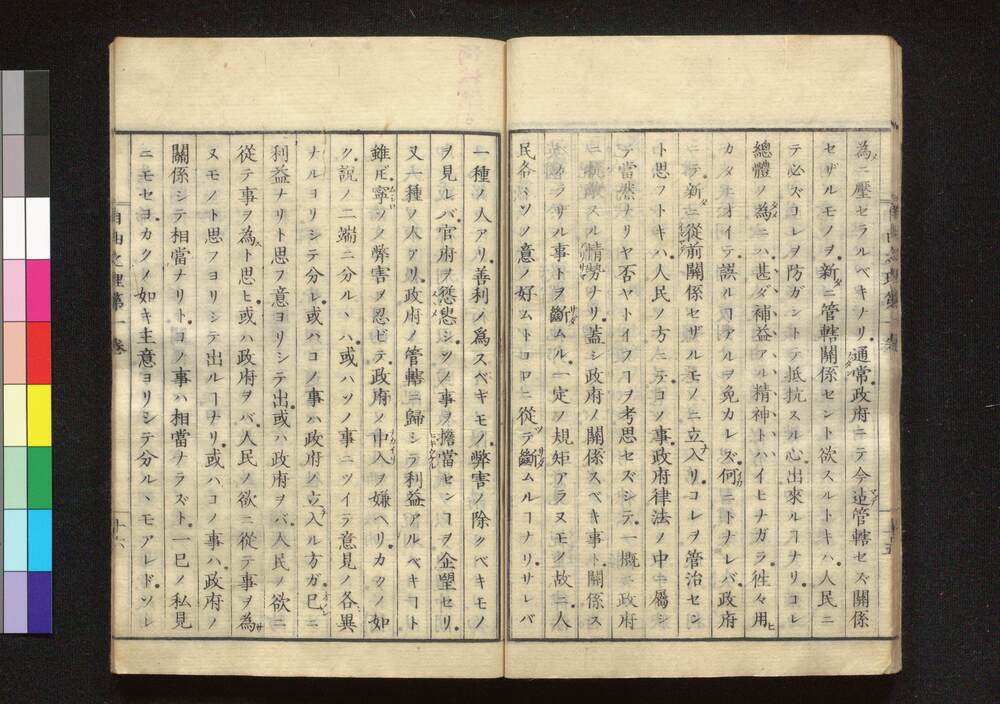 為ニ壓セラルベキナリ。通常政府ニテ今迠管轄セズ關係
セザルモノヲ。新ニ管轄關係セント欲スルトキハ。人民ニ
テ必ズコレヲ防ガントテ抵抗スル心出來ルヿナリ。コレ
總體ノ為ニハ甚ダ補益アル精神トハイヒナガラ。徃々用
カタニオイテ誤ルヿアルヲ免カレズ。何ニトナレバ。政府
ニテ新ニ從前關係セザルモノニ立入リコレヲ管治セン
ト思フトキハ。人民ノ方ニテコノ事政府律法ノ中ニ屬シ
テ當然ナリヤ否ヤトイフヿヲ考思セズシテ。一概ニ政府
ニ抗敵スル情勢ナリ。蓋シ政府ノ關係スベキ事ト。關係ス
ベカラザル事トヲ斷ムル。一定ノ規矩アラヌモノ故ニ。人
民各々ソノ意ノ好ムトコロニ從テ斷ムルヿナリ。サレバ
一種ノ人アリ。善利ノ為スベキモノ。弊害ノ除クベキモノ
ヲ見レバ。官府ヲ慫慂シ。ソノ事ヲ擔當センヿヲ企望セリ。
又一種ノ人アリ。政府ノ管轄ニ歸シテ利益アルベキヿト
雖ドモ。寧ソノ弊害ヲ忍ビテ。政府ノ中入ヲ嫌ヘリ。カクノ如
ク。說ノ二端ニ分ルヽハ。或ハソノ事ニツイテ意見ノ各異
ナルヨリシテ分レ。或ハコノ事ハ政府ノ立入ル方ガ巳ニ
利益ナリト思フ意ヨリシテ出。或ハ政府ヲバ。人民ノ欲ニ
從テ事ヲ為ト思ヒ。或ハ政府ヲバ。人民ノ欲ニ從テ事ヲ為
ヌモノト思フヨリシテ出ルヿナリ。或ハコノ事ハ。政府ノ
關係シテ相當ナリト。コノ事ハ相當ナラズト。一巳ノ私見
ニモセヨ。カクノ如キ主意ヨリシテ分ルヽモアレド。ソレ
自由之理第一卷
十六